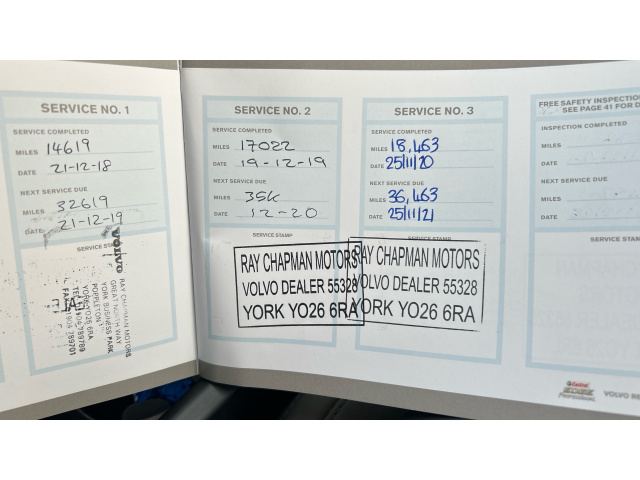 SERVICE NO. 1
SERVICE COMPLETED
MILES 14619
DATE 21-12-18
NEXT SERVICE DUE
MILES 32619
DATE 21-12-19
SERVICE STAMP
VOLVO
RAY CHAPMAN MOTORS
GREAT NORTH WAY
YORK BUSINESS PARK
POPPLETON
YORK YO26 6RA
SERVICE NO. 2
SERVICE COMPLETED
MILES 17022
DATE 19-12-19
NEXT SERVICE DUE
MILES 35K
DATE 12-20
SERVICE STAMP
RAY CHAPMAN MOTORS
VOLVO DEALER 55328
YORK YO26 6RA
SERVICE NO. 3
SERVICE COMPLETED
MILES 18,463
DATE 25/11/20
NEXT SERVICE DUE
MILES 36,463
DATE 25/11/21
SERVICE STAMP
RAY CHAPMAN MOTORS
VOLVO DEALER 55328
YORK YO26 6RA
FREE SAFETY INSPECTION
SEE PAGE 41 FOR D
INSPECTION COMPLETED
MILES
DATE
NEXT SERVICE DUE
MILES
DATE
SERVICE STAM
Castrol
EDGE
PROFESSIONAL
VOLVO RE